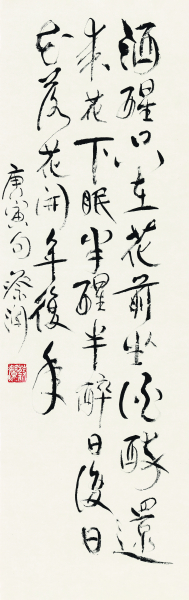 酒醒只在花前坐酒醉還
来花下眠半醒半醉日復日
花落花開年復年
庚寅